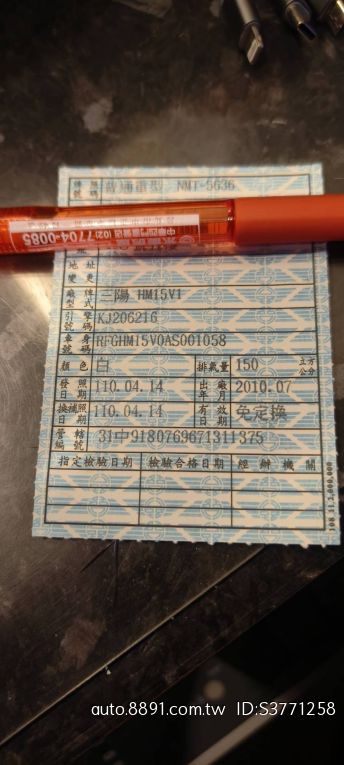 牌照號碼 普通重型 NMT-5636
中華西門直營店(02)7704-0085
地址變更
廠型 牌式 三陽 HM15V1
引號 擎碼 KJ206216
車號 身碼 RFGHM15V0AS001058
顏色 白 排氣量 150 立方公分
發照日期 110.04.14 出廠年月 2010.07
換補照日期 110.04.14 有效日期 免定換
管轄編號 31中9180769671311375
指定檢驗日期 檢驗合格日期 經辦機關
108.11.2,000,000
auto.8891.com.tw ID:S3771258